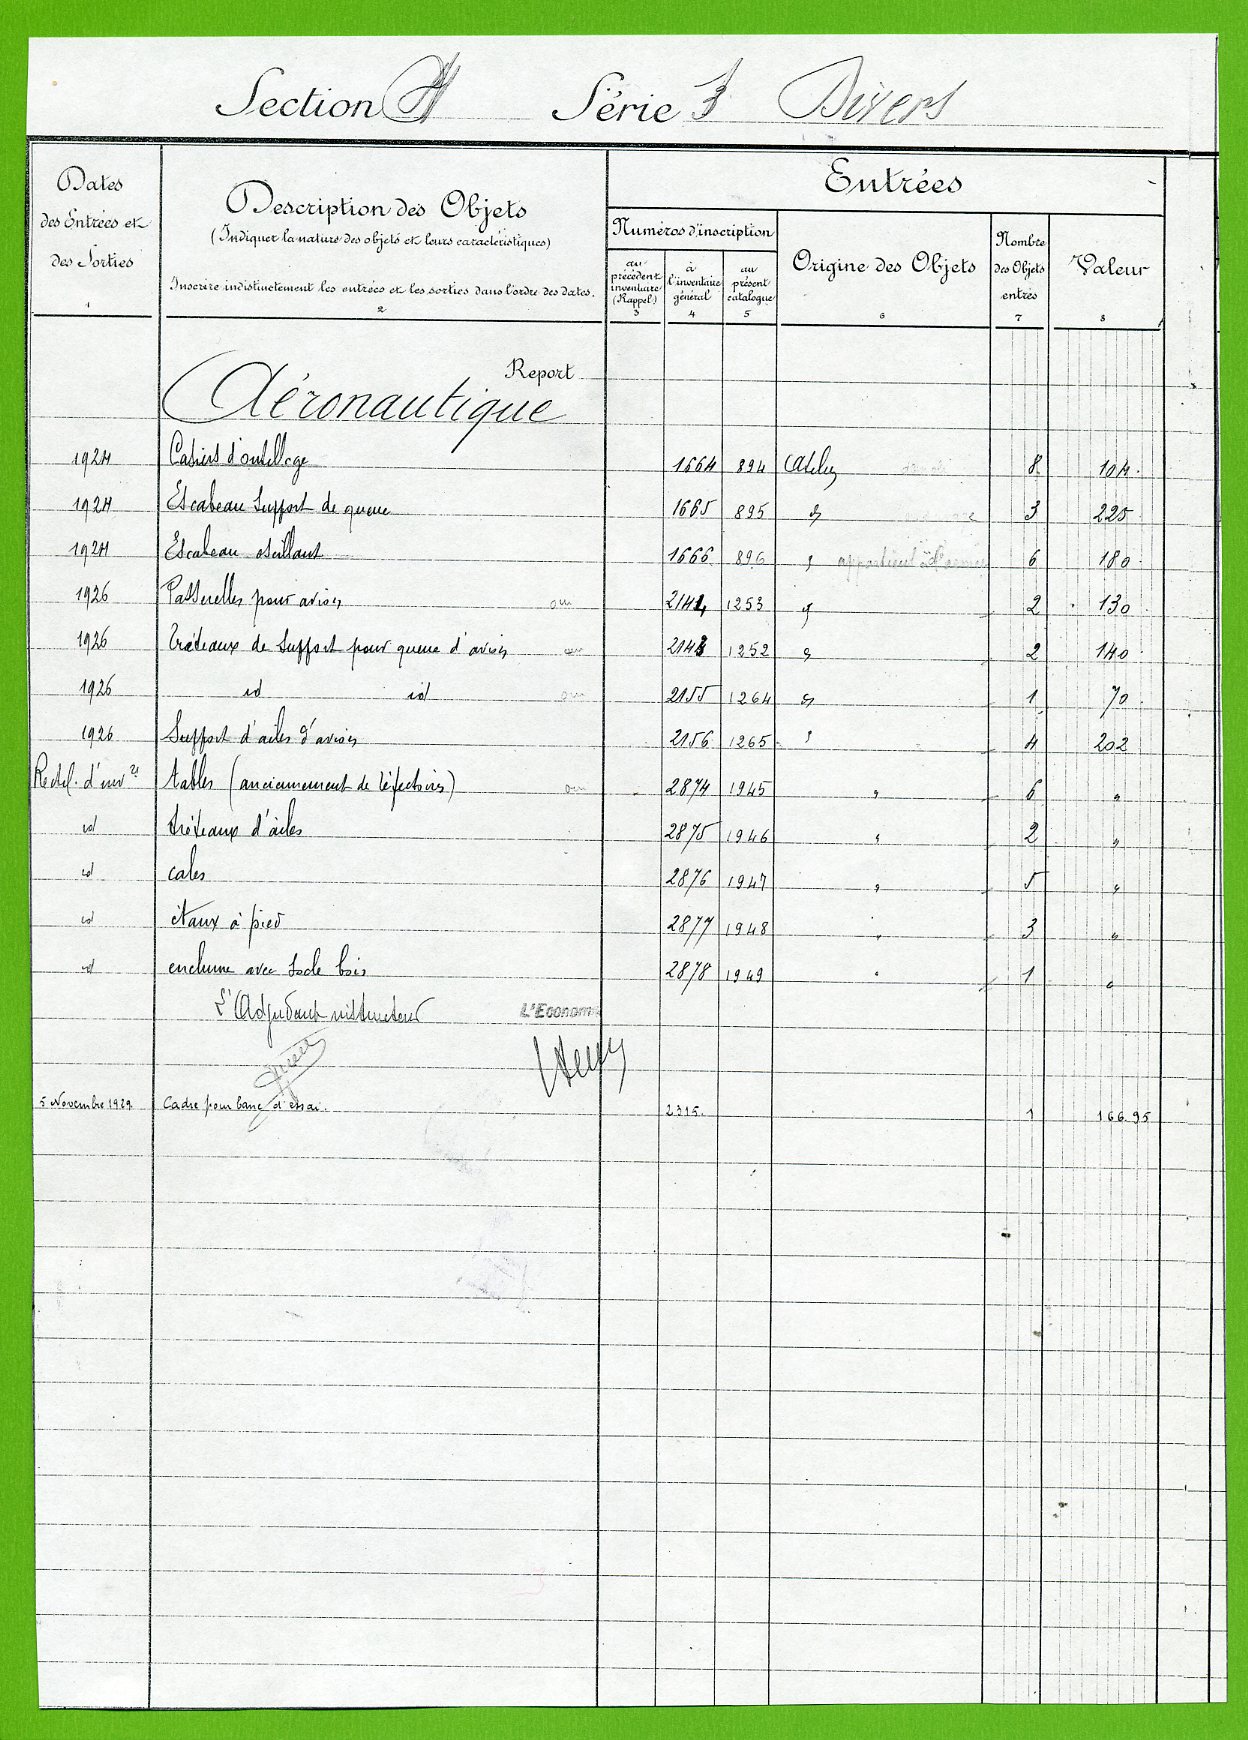 Section A Série 3 Divers
Dates des Entrées et des Sorties 1
Description des Objets
(Indiquer la nature des objets et leurs caractéristiques)
Inscrire indistinctement les entrées et les sorties dans l'ordre des dates.
2
Entrées
Numéros d'inscription
au précédent inventaire (Rappel) 3
à l'inventaire général 4
au présent catalogue 5
Origine des Objets 6
Nombre des Objets entrés 7
Valeur 8
Report
Aéronautique
1924 Casiers d'outillage 1664 894 8 104
1924 Escabeau support de queue 1665 895 " 3 225
1924 Escabeau oscillant 1666 896 " appartient 6 180
1926 Passerelles pour avion oui 2144 1253 " 2 130
1926 Tréteaux de support pour queue d'avion oui 2143 1252 " 2 140
1926 id id oui 2155 1264 " 1 70
1926 Support d'ailes d'avion 2156 1265 " 4 202
tables (anciennement de réfectoire) oui 2874 1945 " 6 "
id tréteaux d'ailes 2875 1946 " 2 "
id cales 2876 1947 " 5 "
id étaux à pied 2877 1948 " 3 "
id enclume avec socle bois 2878 1949 " 1 "
L'Adjudant instructeur L'Econom
5 Novembre 1929 Cadre pour banc d'essai. 2315. 1 166.95